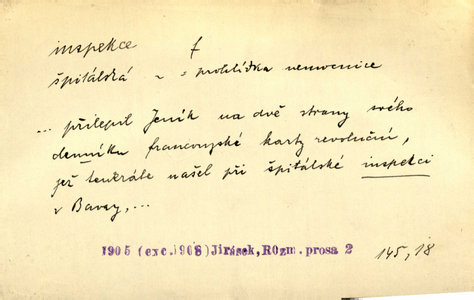 inspekce f
špitálská ~ = prohlídka nemocnice
... přilepil Jeník na dvě strany svého
denníku francouzské karty revoluční,
jež tenkráte našel při špitálské inspekci
v Bavay, ...
1905 (exc. 1908) Jirásek, Rozm. prosa 2 145, 18